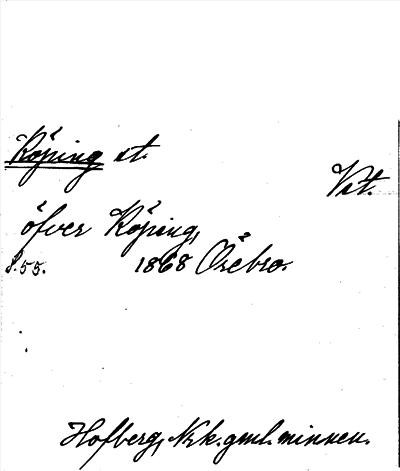 Köping st.
Vst.
öfver Köping,
s. 55. 1868 Örebro.
Hofberg, Nk. k. gml. minnen.